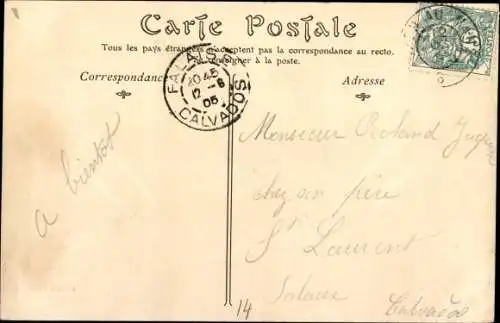 Carte Postale
Tous les pays étrangers n'acceptent pas la correspondance au recto.
se renseigner à la poste.
Correspondance
Adresse
FALAISE
20 45
12 -8
05
CALVADOS
a bientot
Monsieur Roland
chez son père
St Laurent
Calvados
14